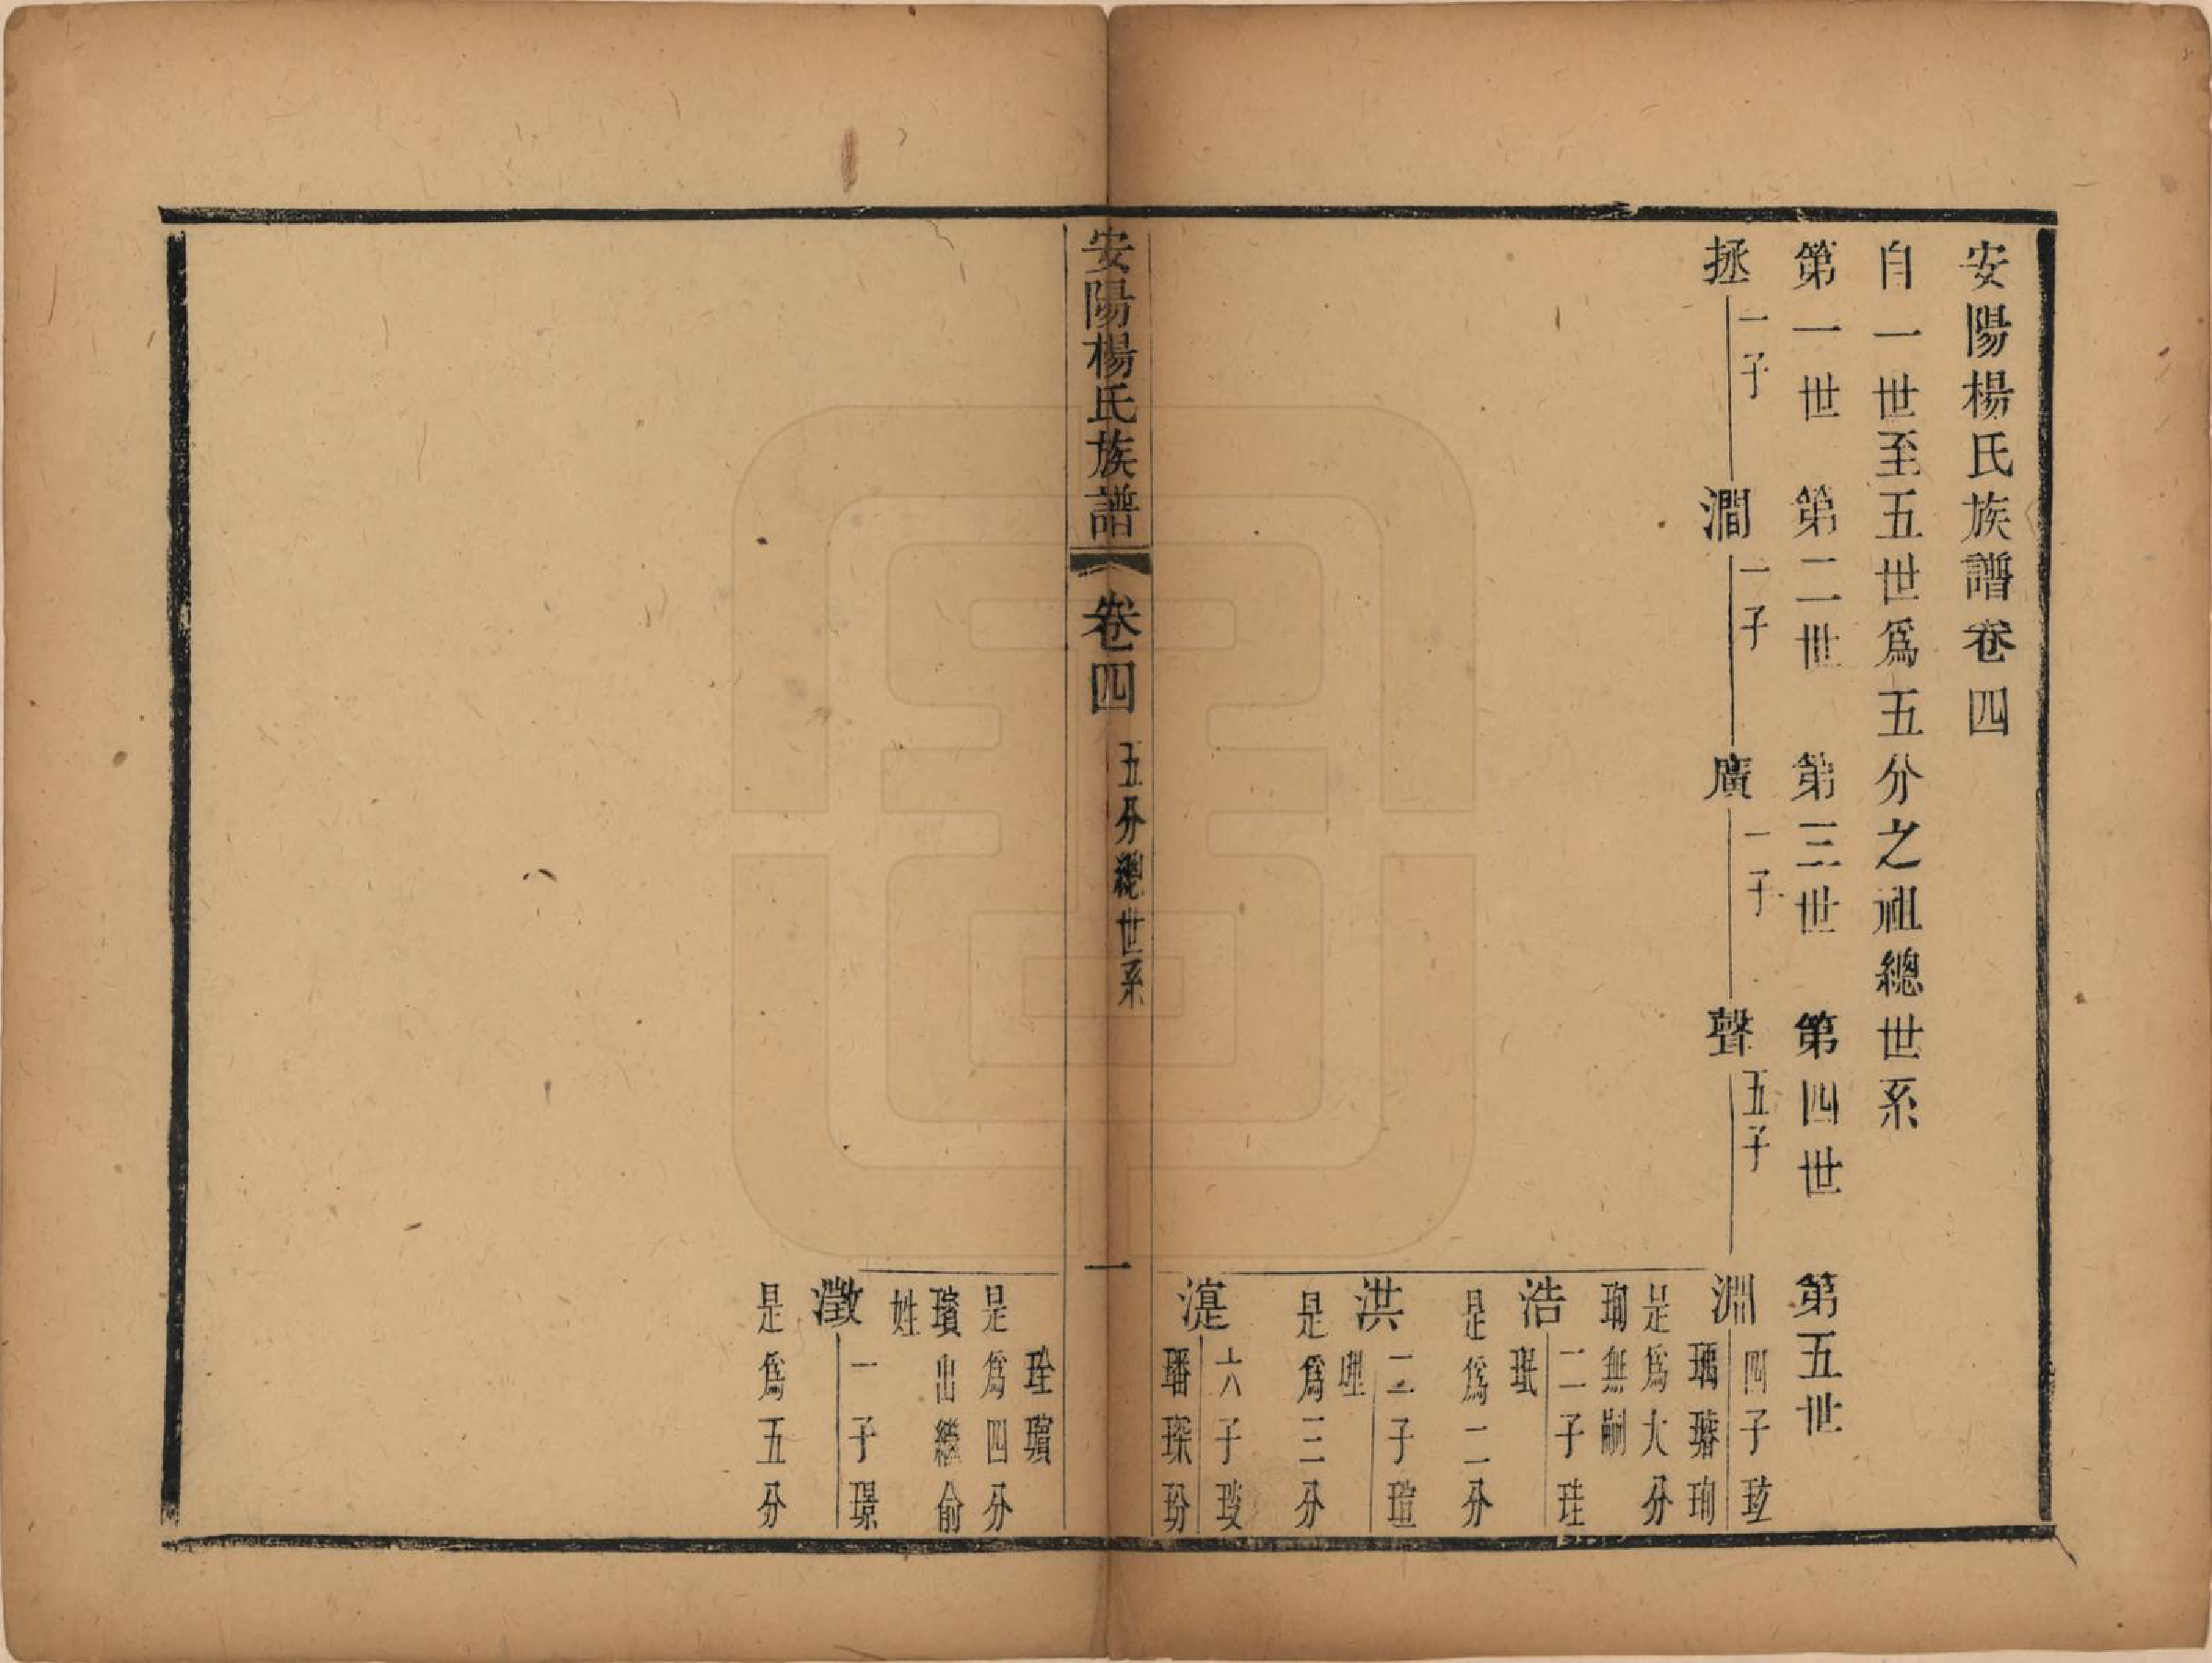 安陽楊氏族譜卷四
自一世至五世爲五分之祖總世系
第一世 第二世 第三世 第四世 第五世
拯 一子 澗 一子 廣 一子 聲 五子 淵 四子 玹
瑀 璿 珣
是爲大分
珣無嗣
浩 二子 珪
珉
是爲二分
洪 二子 瑄
琞
是爲三分
湜 六子 玟
璠 琛 玢
安陽楊氏族譜 卷四 五分總世系 一
珄 璸
是爲四分
璸出繼俞
姓
澂 一子 璟
是爲五分